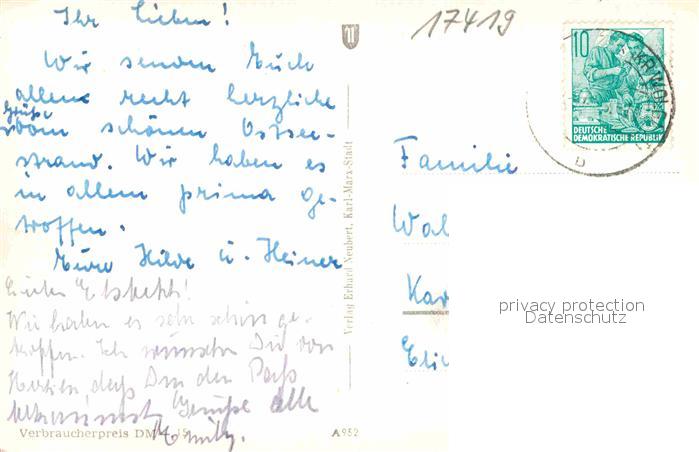 Ihr Lieben!
Wir senden Euch
allen recht herzliche
Grüße
vom schönen Ostsee-
strand. Wir haben es
in allem prima ge-
troffen.
Eure Hilde u. Heiner
Liebe Elsbeth!
Wir haben es sehr schön ge-
troffen. Ich wünsche Dir von
Herzen daß Du den Paß
bekommst. Grüße alle
Emily.
Verbraucherpreis DM
A 952
Verlag Erhard Neubert, Karl-Marx-Stadt
17419
10
DEUTSCHE
DEMOKRATISCHE REPUBLIK
Familie
Wal
Kar
privacy protection
Datenschutz